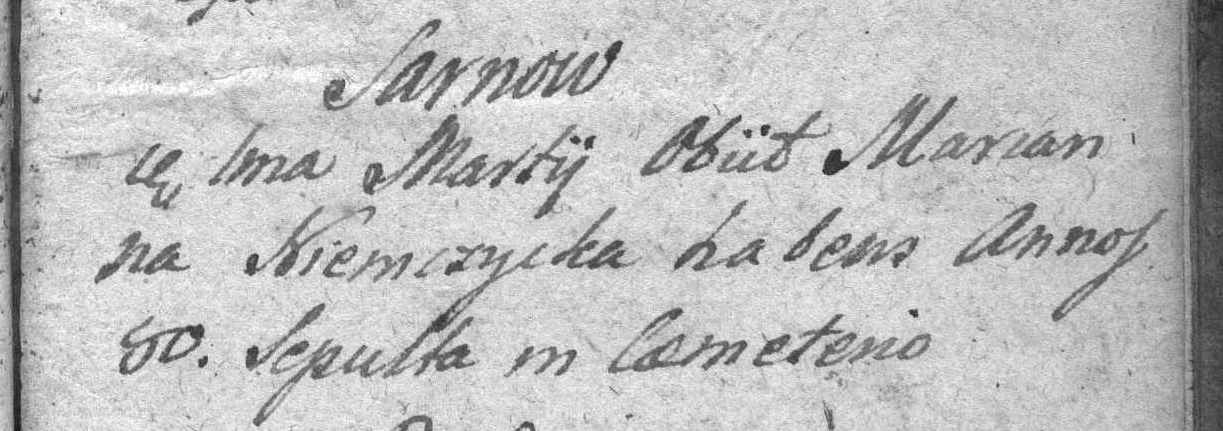 Sarnow
1ma Martij Obiit Marian
na Niemczycka habens Annos
50. Sepulta in Cœmeterio